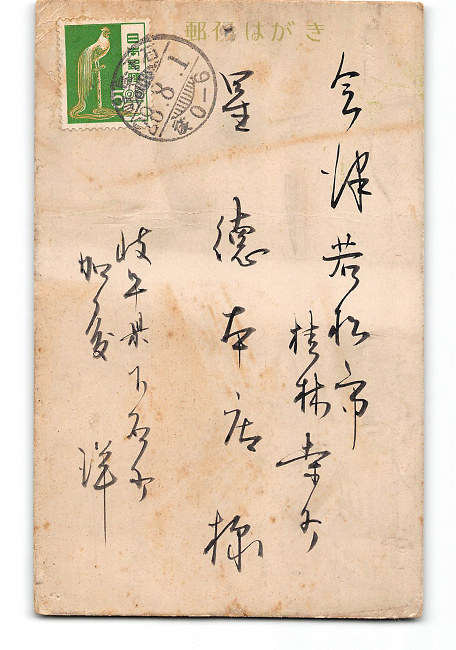 郵便はがき
日本郵便
8.8.1
后0-6
会津若松市
桂林寺町
星徳本店様
岐阜県下石町
加藤 洋